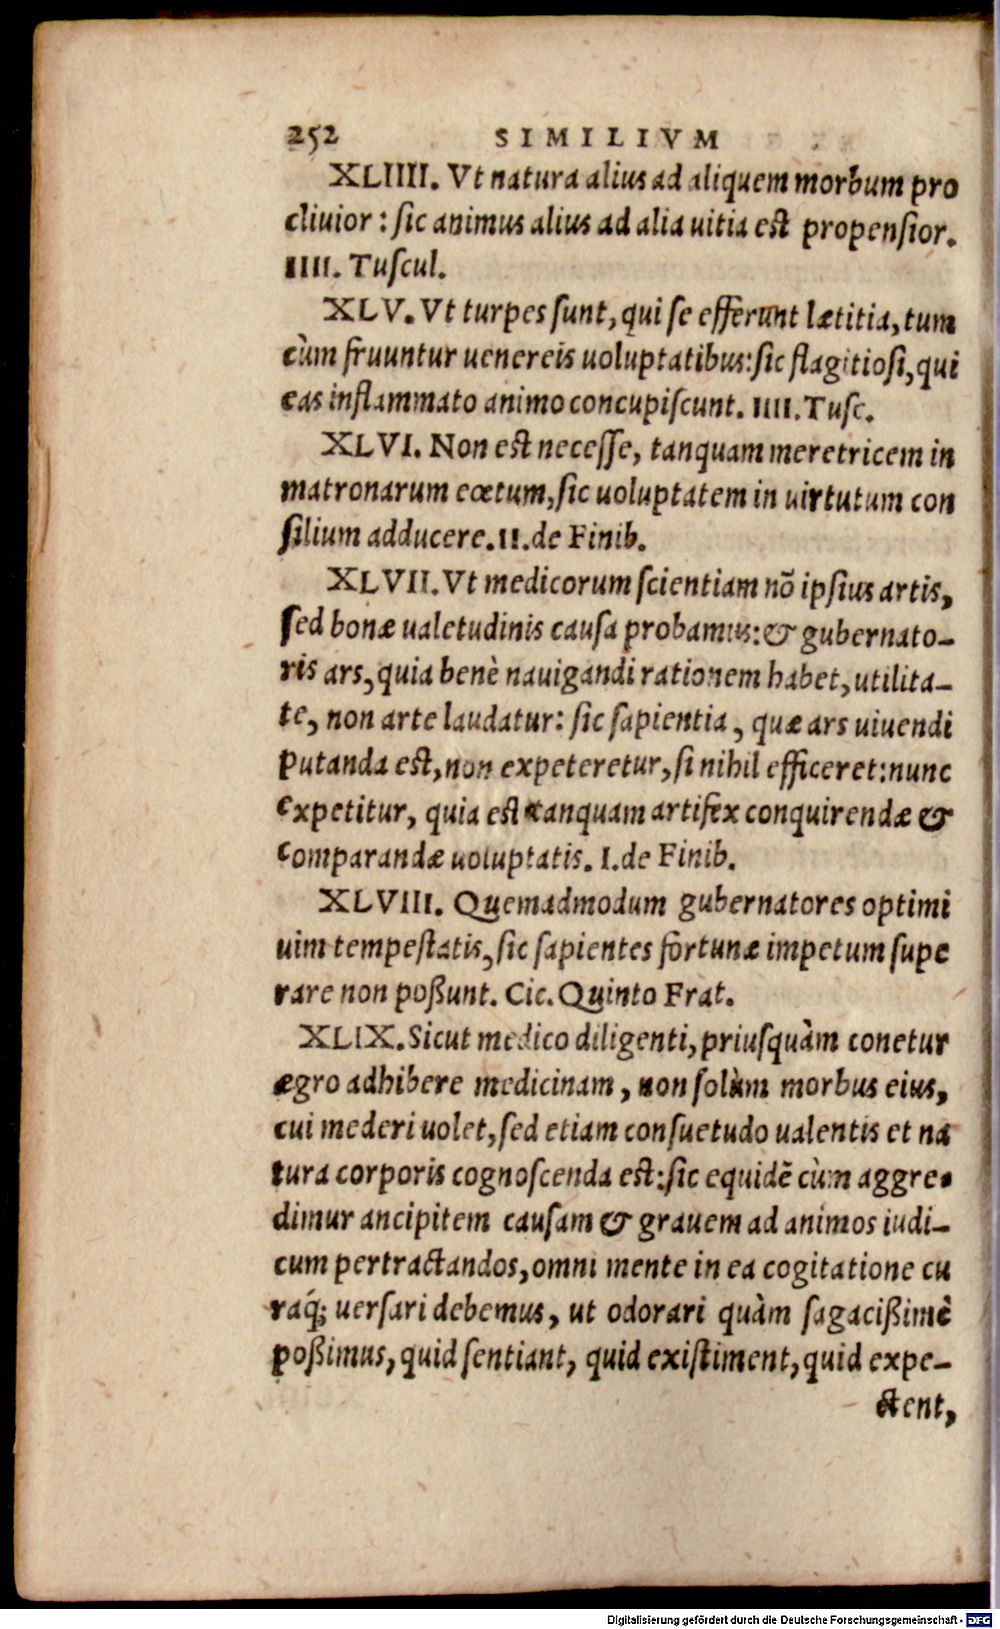 252 SIMILIVM
XLIIII. Vt natura alius ad aliquem morbum pro
cliuior : sic animus alius ad alia uitia est propensior.
IIII. Tuscul.
XLV. Vt turpes sunt, qui se efferunt lætitia, tum
cùm fruuntur uenereis uoluptatibus: sic flagitiosi, qui
eas inflammato animo concupiscunt. IIII. Tusc.
XLVI. Non est necesse, tanquam meretricem in
matronarum cœtum, sic uoluptatem in uirtutum con
silium adducere. II. de Finib.
XLVII. Vt medicorum scientiam nõ ipsius artis,
sed bonæ ualetudinis causa probamus: & gubernato-
ris ars, quia benè nauigandi rationem habet, utilita-
te, non arte laudatur: sic sapientia, quæ ars uiuendi
putanda est, non expeteretur, si nihil efficeret: nunc
expetitur, quia est tanquam artifex conquirendæ &
comparandæ uoluptatis. I. de Finib.
XLVIII. Quemadmodum gubernatores optimi
uim tempestatis, sic sapientes fortunæ impetum supe
rare non poßunt. Cic. Quinto Frat.
XLIX. Sicut medico diligenti, priusquàm conetur
ægro adhibere medicinam, non solùm morbus eius,
cui mederi uolet, sed etiam consuetudo ualentis et na
tura corporis cognoscenda est: sic equidẽ cùm aggre-
dimur ancipitem causam & grauem ad animos iudi-
cum pertractandos, omni mente in ea cogitatione cu
raq́; uersari debemus, ut odorari quàm sagacißimè
poßimus, quid sentiant, quid existiment, quid expe-
ctent,
Digitalisierung gefördert durch die Deutsche Forschungsgemeinschaft - DFG